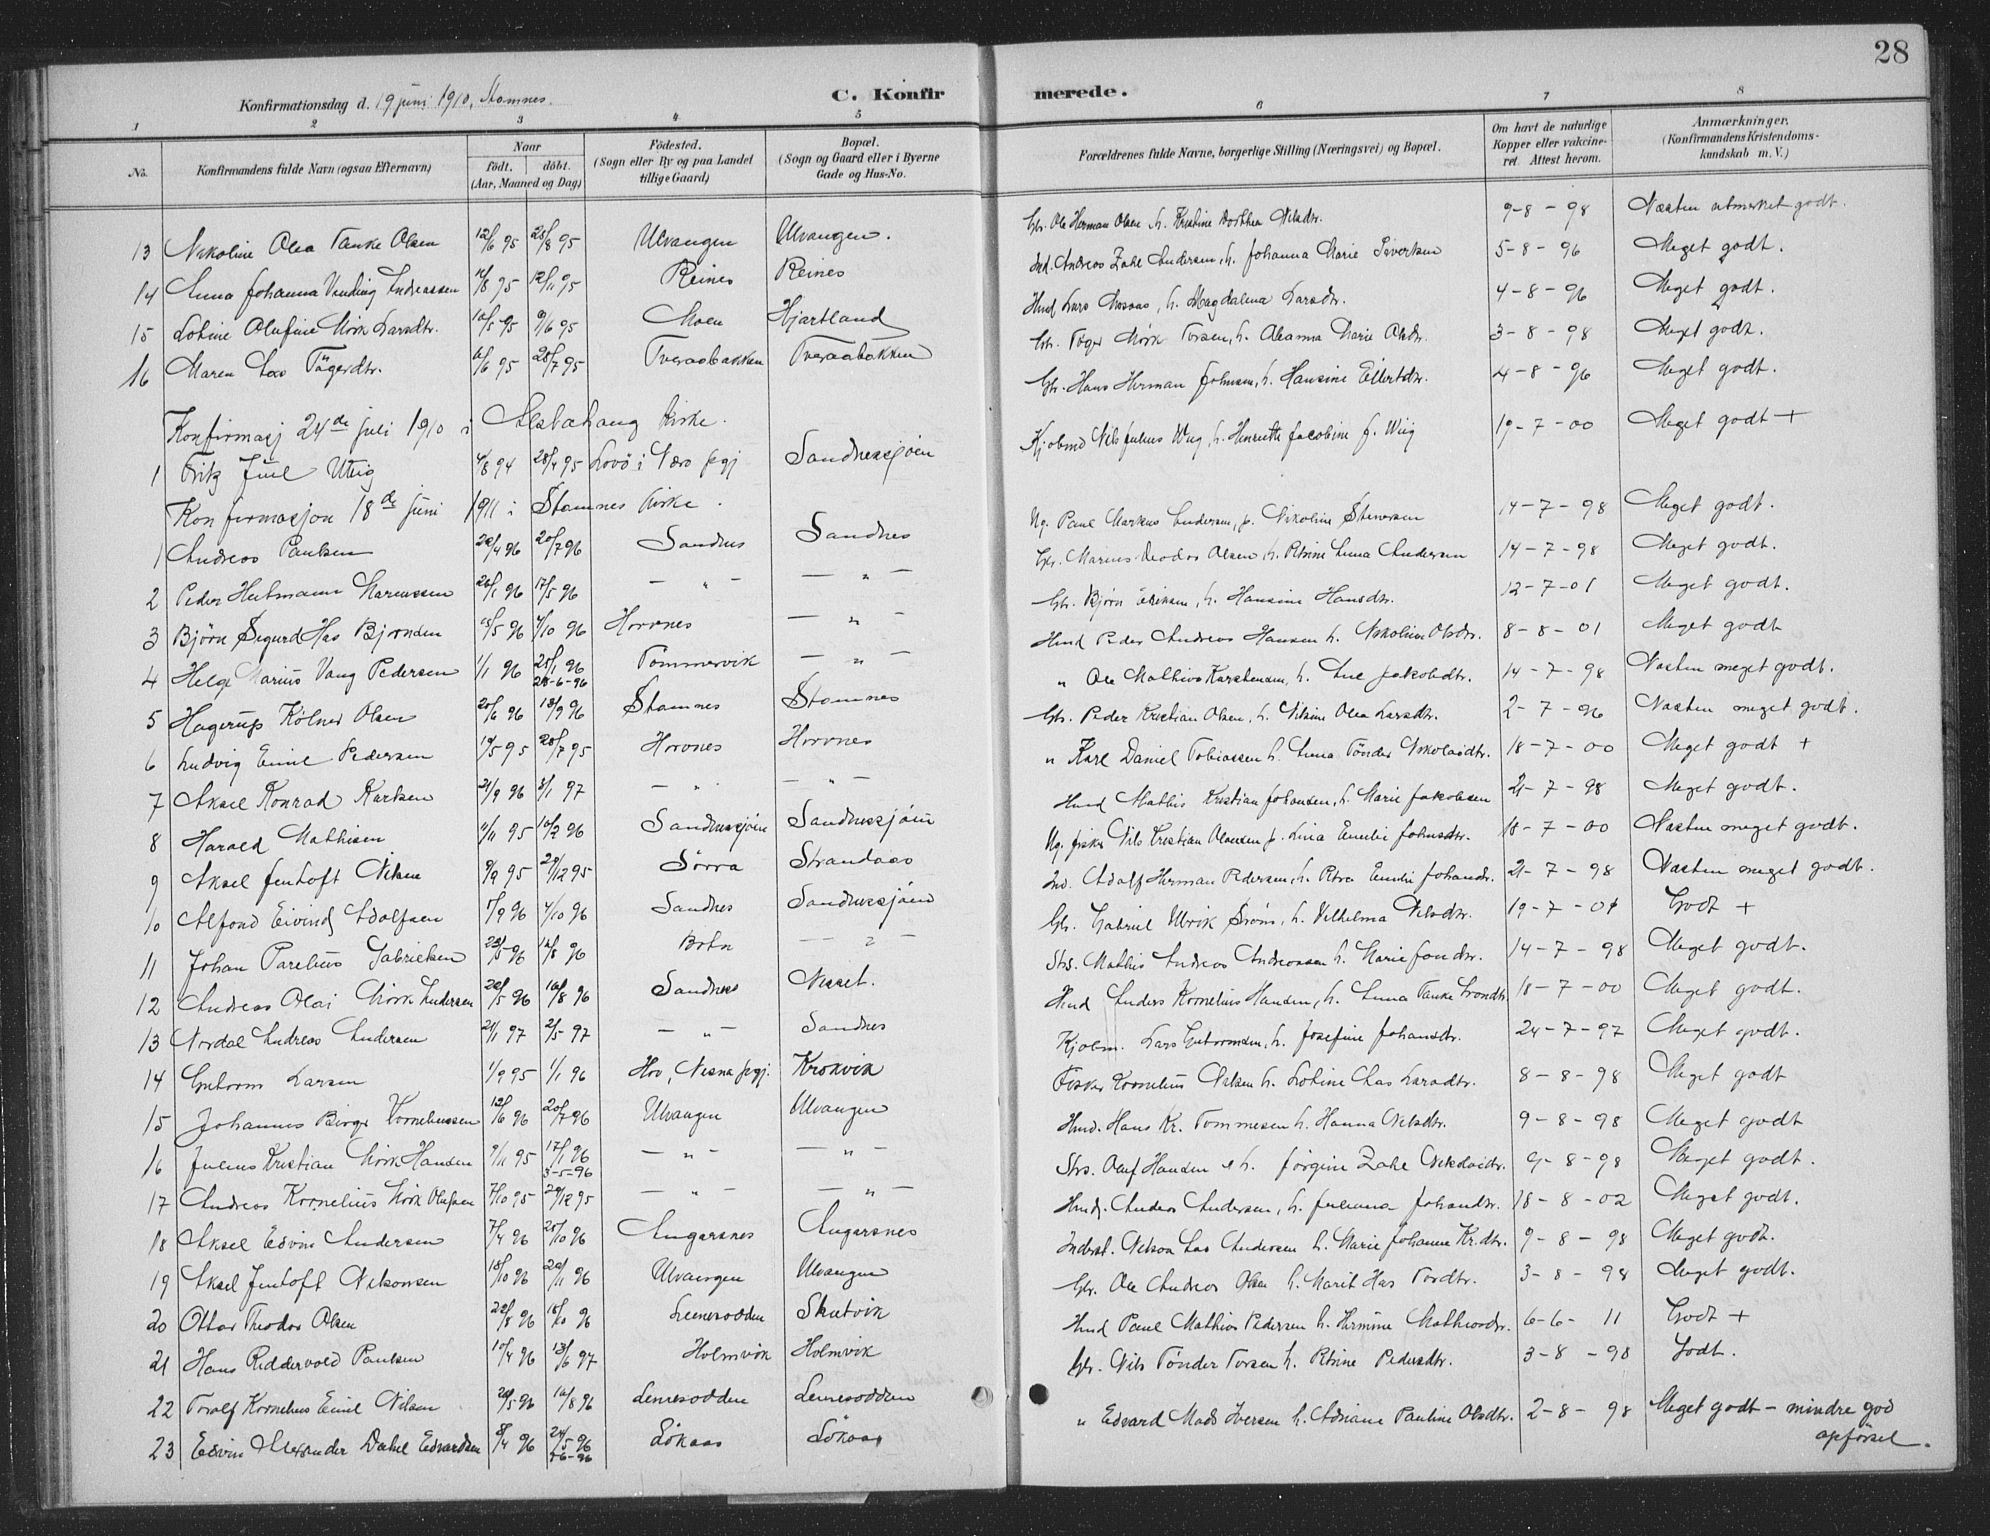 28
Konfirmationsdag d. 19 juni 1910, Stamnes.
C. Konfirmerede.
1 2 3 4 5 6 7 8
No. Konfirmandens fulde Navn (ogsaa Efternavn) Naar født. døbt. (Aar, Maaned og Dag) Fødested. (Sogn eller By og paa Landet tillige Gaard) Bopæl. (Sogn og Gaard eller i Byerne Gade og Hus-No. Forældrenes fulde Navne, borgerlige Stilling (Næringsvei) og Bopæl. Om havt de naturlige Kopper eller vakcineret. Attest herom. Anmærkninger. (Konfirmandens Kristendomskundskab m. V.)
13 Nikoline Olea Tanke Olsen 12/6 95 25/8 95 Ulvangen Ulvangen. Gbr. Ole Herman Olsen h. Kristine Dorthea Nilsdtr. 9-8-98 Næsten utmerket godt.
14 Anna Johanna Vinding Andreassen 95 12/11 95 Reines Reines Ind. Andreas Zahl Andersen, h. Johanna Marie Sivertsen 5-8-96 Meget godt.
15 Lotine Olufine Mörk Larsdtr. 10/5 95 9/6 95 Moen Hjartland Hmd Lars h. Magdalena Larsdtr. 4-8-96 Meget godt.
16 Maren Tögerdtr. 6/6 95 28/7 95 Tveraabakken Tveraabakken Gbr. Töger Mörk Torsen, h. Oleanna Marie Olsdtr. 3-8-98 Meget godt.
Gbr. Hans Herman Johnsen, h. Hansine Ellertsdtr. 4-8-96 Meget godt.
Konfirmasj 24de juli 1910 i Alstahaug Kirke.
1 Fritz Juel Wiig 4/8 94 28/4 95 Lovö i Nærö pgj Sandnessjöen Kjöbmd Nils Julius Wiig, h. Henriette Jacobine f. Wiig 19-7-00 Meget godt +
Konfirmasjon 18de juni 1911 i Stamnes Kirke.
1 Andreas Paulsen 22/4 96 20/7 96 Sandnes Sandnes Ug. Paul Markus Andersen, p. Nikoline Stenersen 14-7-98 Meget godt.
2 Peder Hartmann Mariussen 26/1 96 17/5 96 — „ — — „ — Gbr. Marius Teodor Olsen, h. Petrine Anna Andersen 14-7-98 Meget godt.
3 Björn Sigurd Has Björnsen 25/5 96 4/10 96 Horvnes — „ — Gbr. Björn Eriksen, h. Hansine Hansdtr. 12-7-01 Meget godt.
4 Helge Marius Vang Pedersen 1/1 96 25/1 96 28-6-96 Tömmervik — „ — Hmd Peder Andreas Hansen h. Nikoline Olsdtr. 8-8-01 Meget godt
5 Hagerup Kölner Olsen 20/6 96 13/9 96 Stamnes Stamnes „ Ole Mathias Karstensen, h. Ane Jakobdtr. 14-7-98 Næsten meget godt.
6 Ludvig Emil Pedersen 19/5 95 28/7 95 Horvnes Horvnes Gbr. Peder Kristian Olsen, h. Nilsine Olea Larsdtr. 2-7-96 Næsten meget godt.
7 Aksel Konrad Karlsen 21/9 96 3/1 97 — „ — „ — „ Karl Daniel Tobiassen h. Anna Tönder Nikolaidtr. 18-7-00 Meget godt +
8 Harald Mathisen 4/11 95 16/2 96 Sandnessjöen Sandnessjöen Hmd Mathis Kristian Johansen, h. Marie Jakobsen 21-7-98 Meget godt.
9 Aksel Jentoft Nilsen 9/9 95 29/12 95 Sörra Strandaas Ug. fisker Nils Kristian Olaussen p. Lina Emelie Johnsdtr. 18-7-00 Næsten meget godt.
10 Alfons Eivind Adolfsen 5/9 96 4/10 96 Sandnes Sandnessjöen Ind. Adolf Herman Pedersen, h. Petra Emelie Johansdtr. 21-7-98 Næsten meget godt.
11 Johan Parelius Gabrielsen 23/5 96 16/8 96 Botn — „ — Gbr. Gabriel Ulrik Ström, h. Vilhelma Nilsdtr. 19-7-01 Godt +
12 Andreas Olai Mörk Andersen 28/5 96 16/8 96 Sandnes Nesset. Strs. Mathis Andreas Andreassen h. Marie Jonsdtr. 14-7-98 Meget godt.
13 Nordal Andreas Andersen 21/1 97 2/5 97 — „ — Sandnes Hmd Anders Kornelius Hansen, h. Anna Tanke Tronddtr. 18-7-00 Meget godt.
14 Guttorm Larsen 1/9 95 1/1 96 Hov, Nesna pgj. Krokvik Kjöbm. Lars Guttormsen, h. Josefine Johansdtr. 24-7-97 Meget godt.
15 Johannes Birger Korneliussen 12/6 96 20/7 96 Ulvangen Ulvangen Fisker Kornelius Nilsen h. Lotine Larsdtr. 8-8-98 Meget godt
16 Julius Kristian Mörk Hansen 9/11 95 17/1 96 3-5-96 — „ — — „ — Hmd. Hans Kr. Tommesen h. Hanna Nilsdtr. 9-8-98 Meget godt
17 Andreas Kornelius Mörk Olufsen 7/10 95 29/12 95 — „ — — „ — Strs. Oluf Hansen & h. Jörgine Zahl Nikolaidtr. 9-8-98 Meget godt.
18 Aksel Edvin Andersen 7/4 96 25/10 96 Angersnes Angersnes Hmd. Anders Andersen, h. Juliana Johansdtr. 18-8-02 Meget godt.
19 Aksel Jentoft Nilsonsen 18/10 96 22/11 96 Ulvangen Ulvangen Inderst. Nilson Andersen h. Marie Johanna Kr.dtr. 9-8-98 Meget godt.
20 Ottar Theodor Olsen 22/8 96 18/10 96 Leinesodden Skutvik Gbr. Ole Andreas Olsen h. Marit Has Tordtr. 3-8-98 Meget godt.
21 Hans Riddervold Paulsen 10/4 96 13/6 97 Holmvik Holmvik Hmd Paul Mathias Pedersen h. Hermine Mathiasdtr. 6-6-11 Godt +
22 Toralf Kornelius Emil Nilsen 29/5 96 16/8 96 Leinesodden Leinesodden Gbr. Nils Tönder Torsen h. Petrine Pedersdtr. 3-8-98 Godt.
23 Edvin Alexander Dahl Edvardsen 8/4 96 24/5 96 7-6-96 Lökaas Lökaas „ Edvard Mads Iversen h. Adriane Pauline Olsdtr. 2-8-98 Meget godt – mindre god
opförsel.